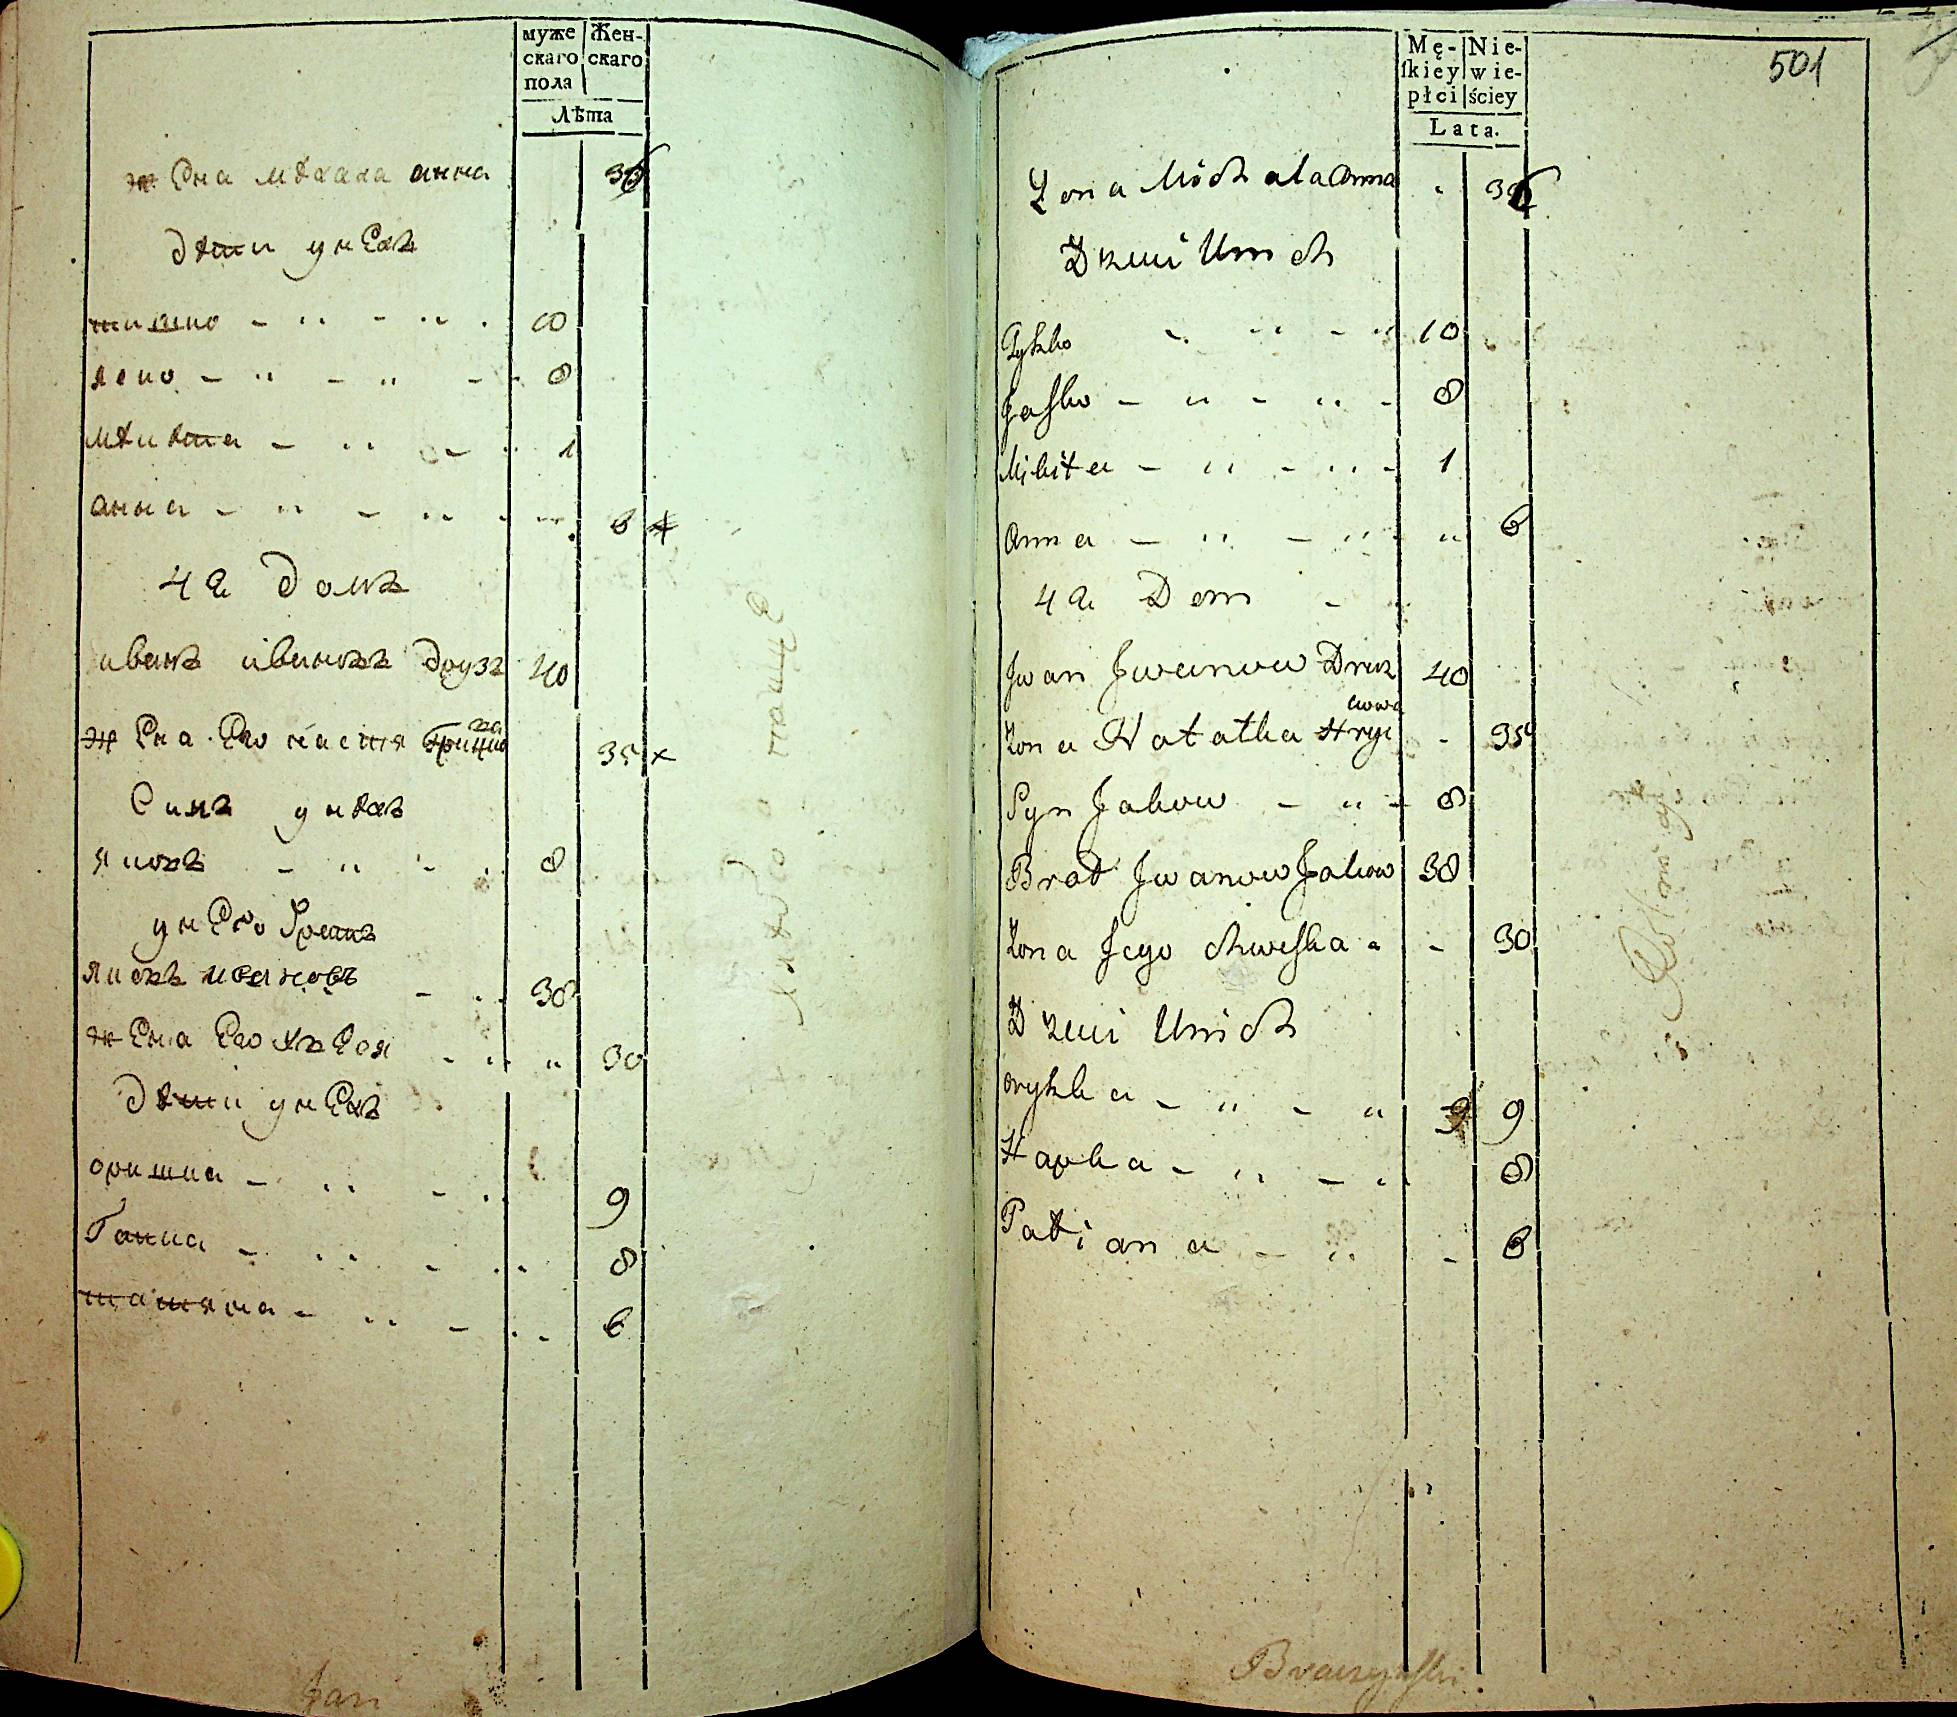 муже скаго пола
Жен- скаго
Лѣта
жена міхала анна 36
дѣти унехъ
тишко - " - " . 10
яско - " - " - . 8
мікіта - " - . 1
анна - " - " . - 6
42 домъ
иванъ івановъ друзъ 40
жена Его настя грицко 35 x
Синъ унѣхъ
яковъ - " - . 8
унЕго братъ
яковъ ивановъ - . 38
жена Его хвеся - " " 30
дѣти унехъ
оришка - " - . 9
Гапка - " - . 8
татяна - " - . 6
Jan
501
Mę- ſkiey płci
Nie- wie- ściey
Lata.
Zona Michala Anna 36
Dzieci Unich
Tyszko - " - " 10
Jaſko - " - " - 8
Mikita - " - " - 1
Anna - " - " " 6
42 Dom -
Iwan Jwanow Druz 40
Zona Natalka Hryc - 35
Syn Jakow - " - 8
Brat Jwanow Jakow 38
Zona Jego chweſka - 30
Dzieci Unich
oryszka - " - " 9 9
Hapka - " - " 8
Tatiana - " - 6